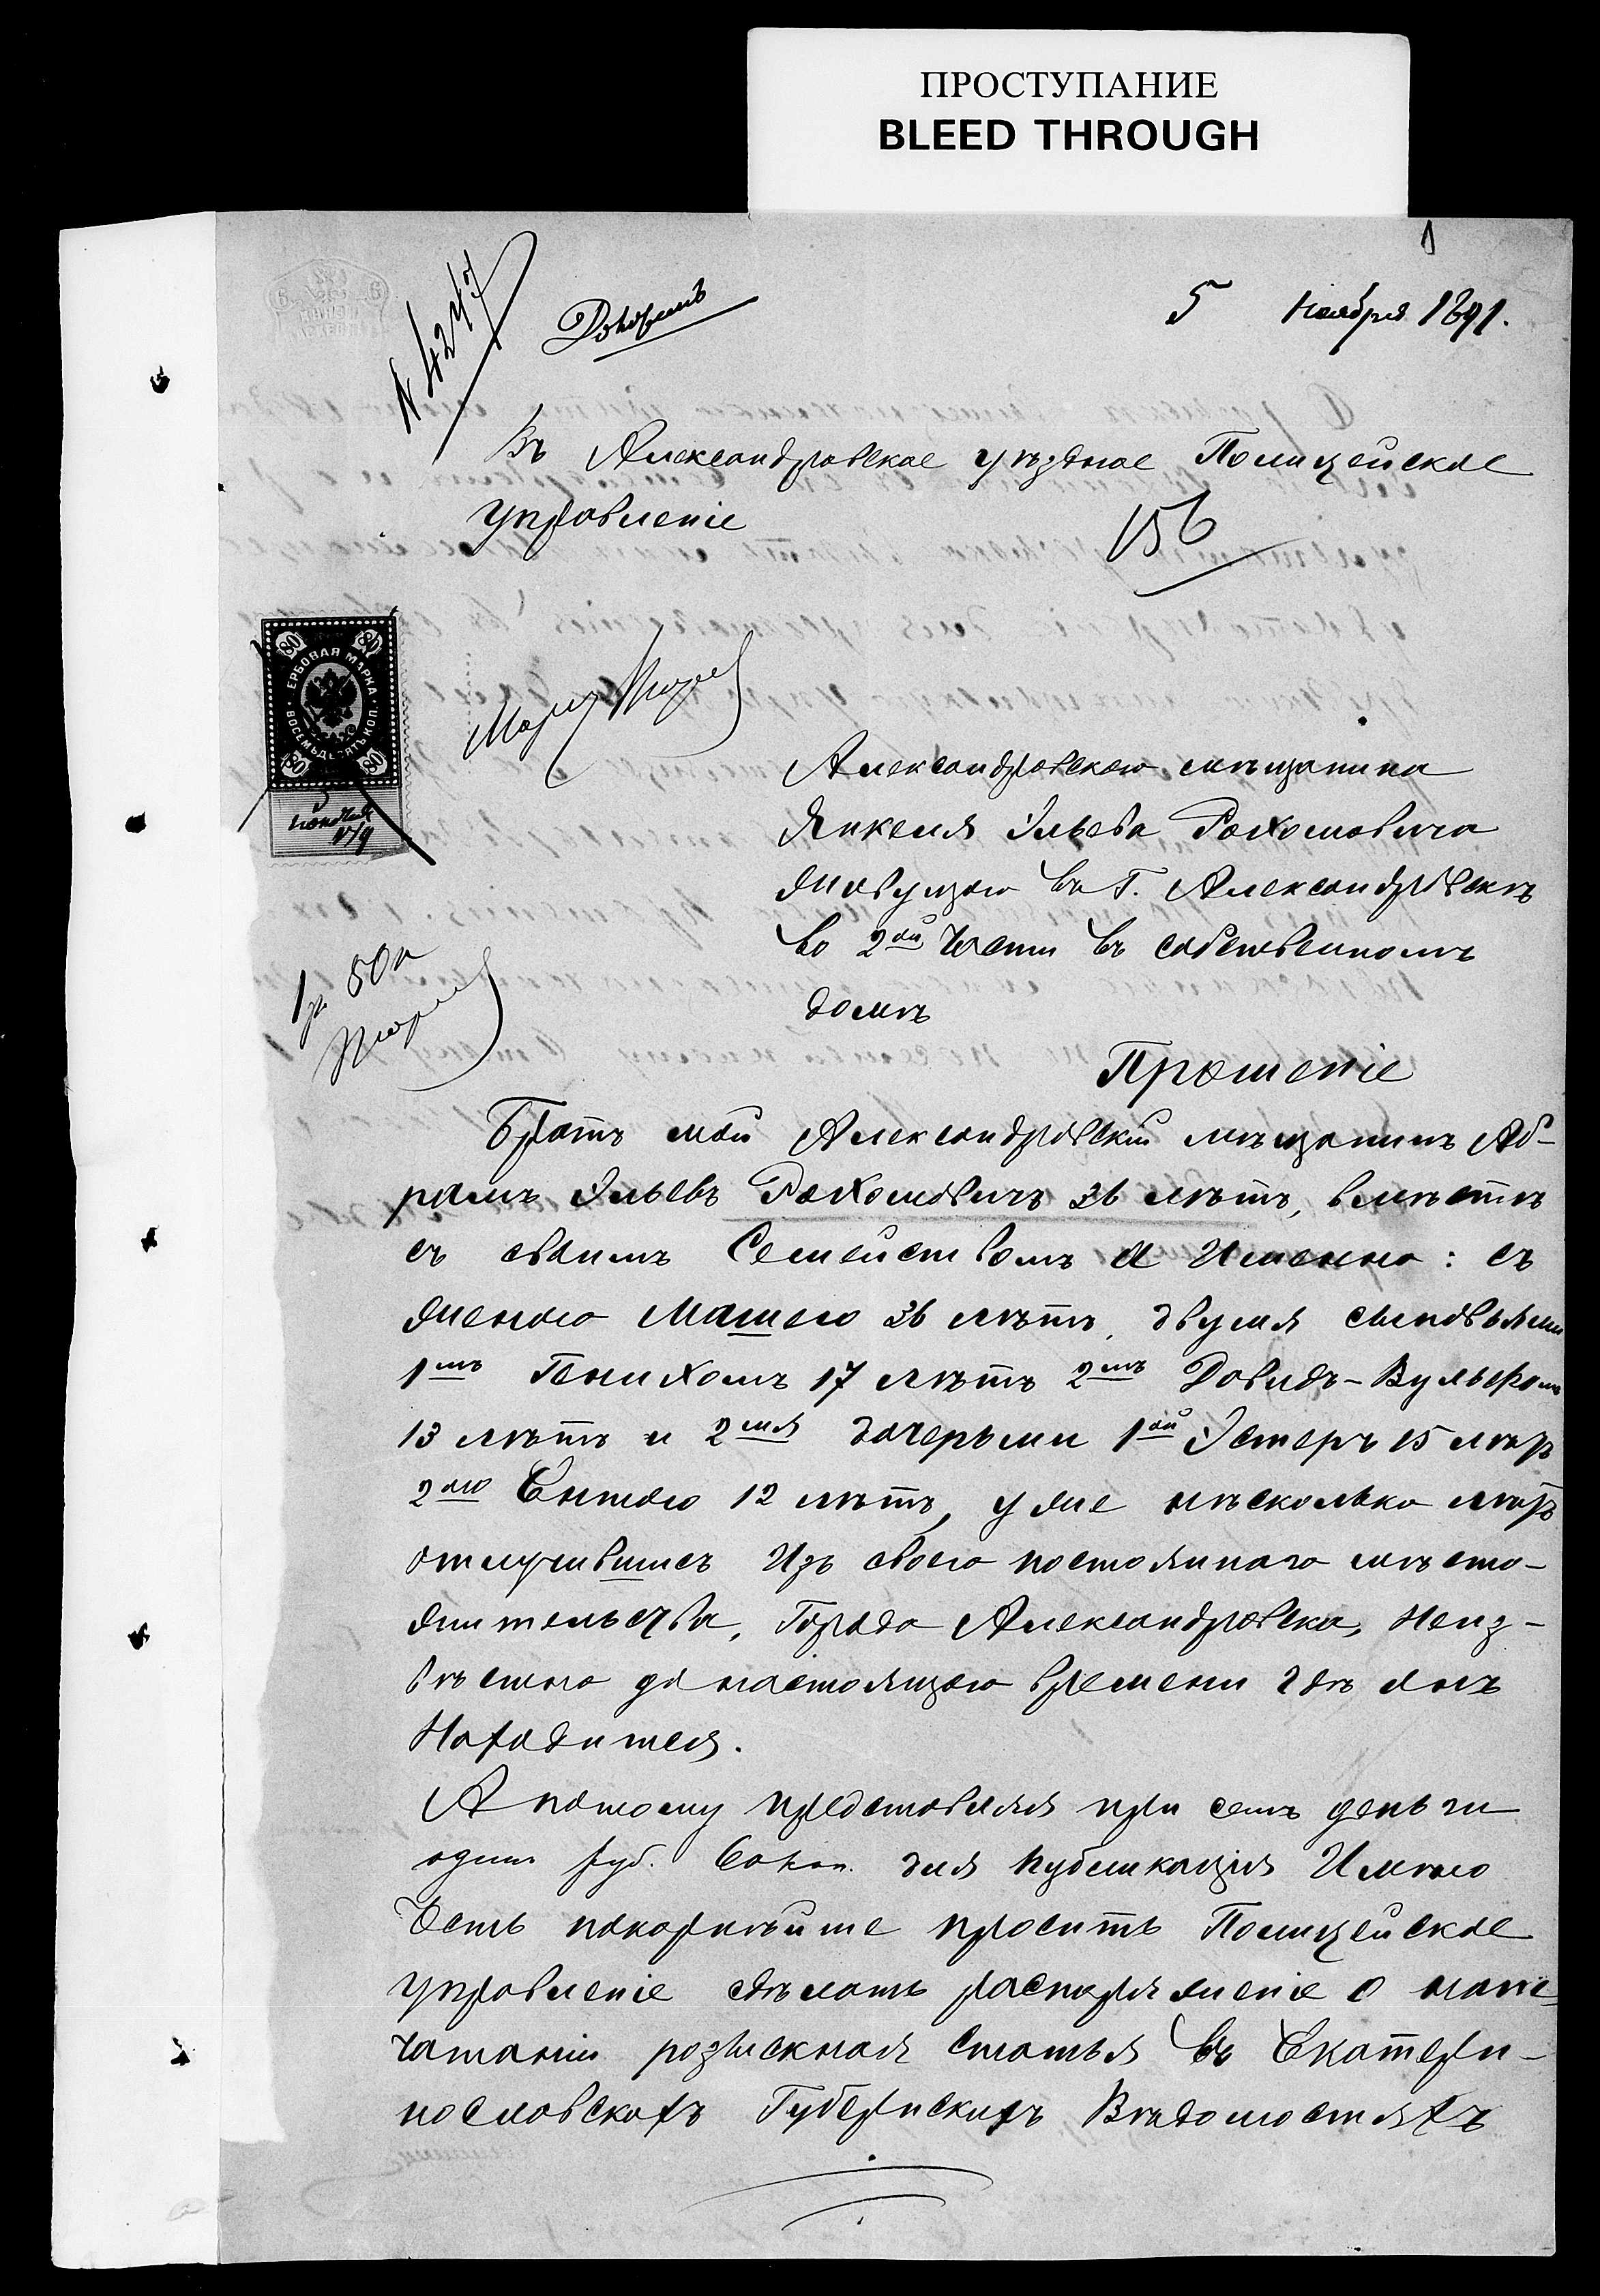 ПРОСТУПАНИЕ
BLEED THROUGH
1
N 4247
5 Ноября 1891.
Въ Александровское уѣздное Полицейское
Управленіе
156
80 80
ЕРБОВАЯ МАРКА
ВОСЕМЬДЕСЯТЬ КОП.
80 80
Александровскаго мѣщанина
Янкеля Эльева Рахомовича
живущаго въ Г. Александровскѣ
во 2ой Части въ собственномъ
домѣ
1 р 50 к
Прошеніе
Братъ мой Александровскій мѣщанинъ Аб-
рамъ Эльевъ Рахомовичъ 36 лѣтъ, вмѣстѣ
съ своимъ Семействомъ а Именно: съ
женою Машею 36 лѣтъ, двумя сыновьями
1мъ Генихомъ 17 лѣтъ 2мъ Довидъ-Вульфомъ
13 лѣтъ и 2мя дочерьми 1ой Эстеръ 15 лѣтъ
2ою 12 лѣтъ, уже нѣсколько лѣтъ
отлучившись Изъ своего постояннаго мѣсто-
жительства, Города Александровска, Неиз-
вѣстно до настоящаго времени гдѣ онъ
Находится.
А потому представляя при семъ деньги
одинъ руб. 60 коп. для публикація Имѣю
Честь покорнѣйше просить Полицейское
Управленіе сдѣлать распоряженіе о напе-
чатаніи розыскная статья въ Екатери-
нославскохъ Губернскихъ Вѣдомостяхъ